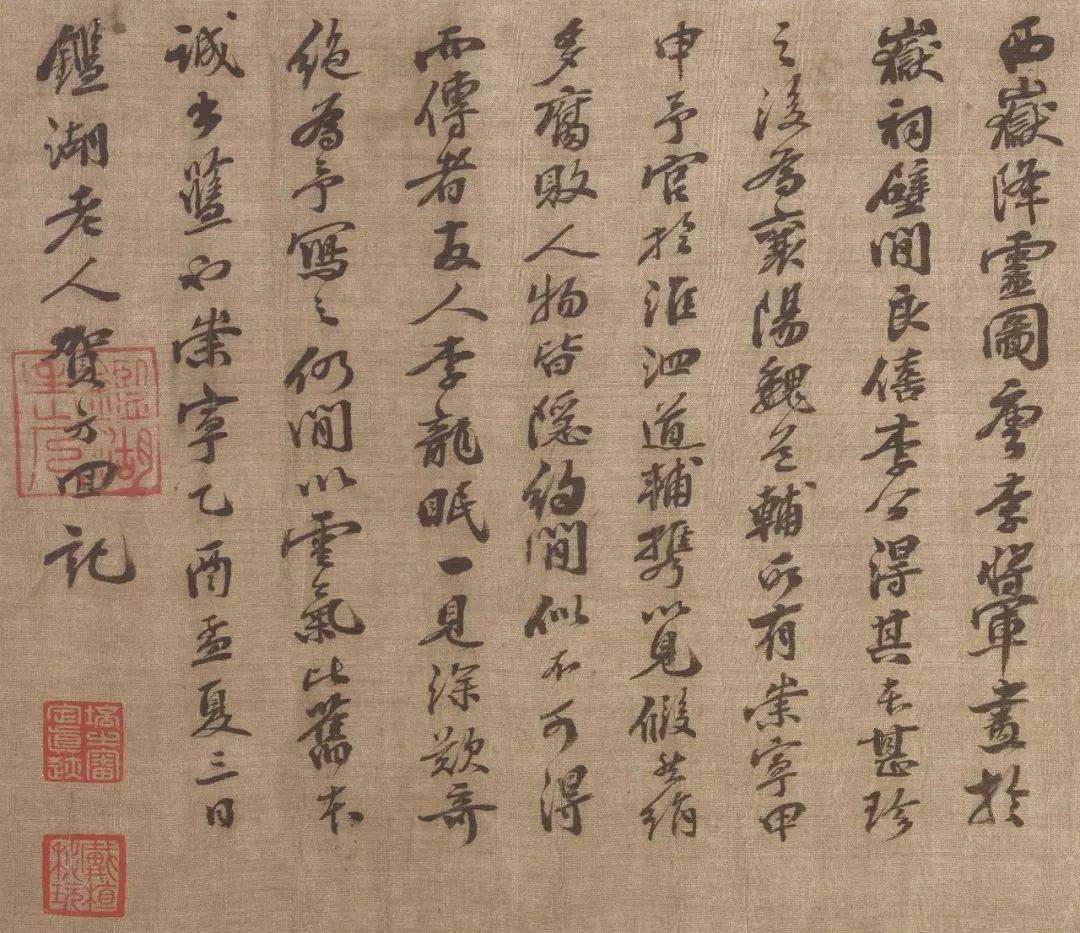 西嶽降靈圖唐李將軍畫於
嶽祠壁間良僖李公得其本甚珍
之後為襄陽魏道輔所有崇寧甲
申予官於淮泗道輔攜以見假然絹
多腐敗人物皆隱約間似不可得
而傳者友人李龍眠一見深歎奇
絕為予寫之仍間以雲氣比舊本
誠出藍也崇寧乙酉孟夏三日
鑑湖老人賀方回記
培之審定真跡
戴植秘玩